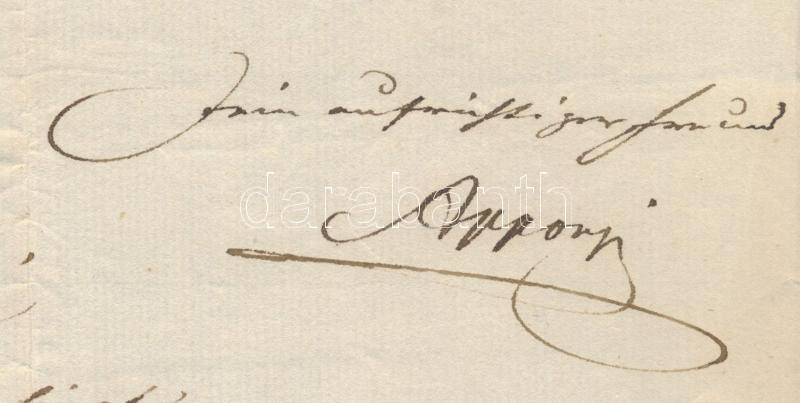 Dein aufrichtiger Freund
Apponyi
darabanth